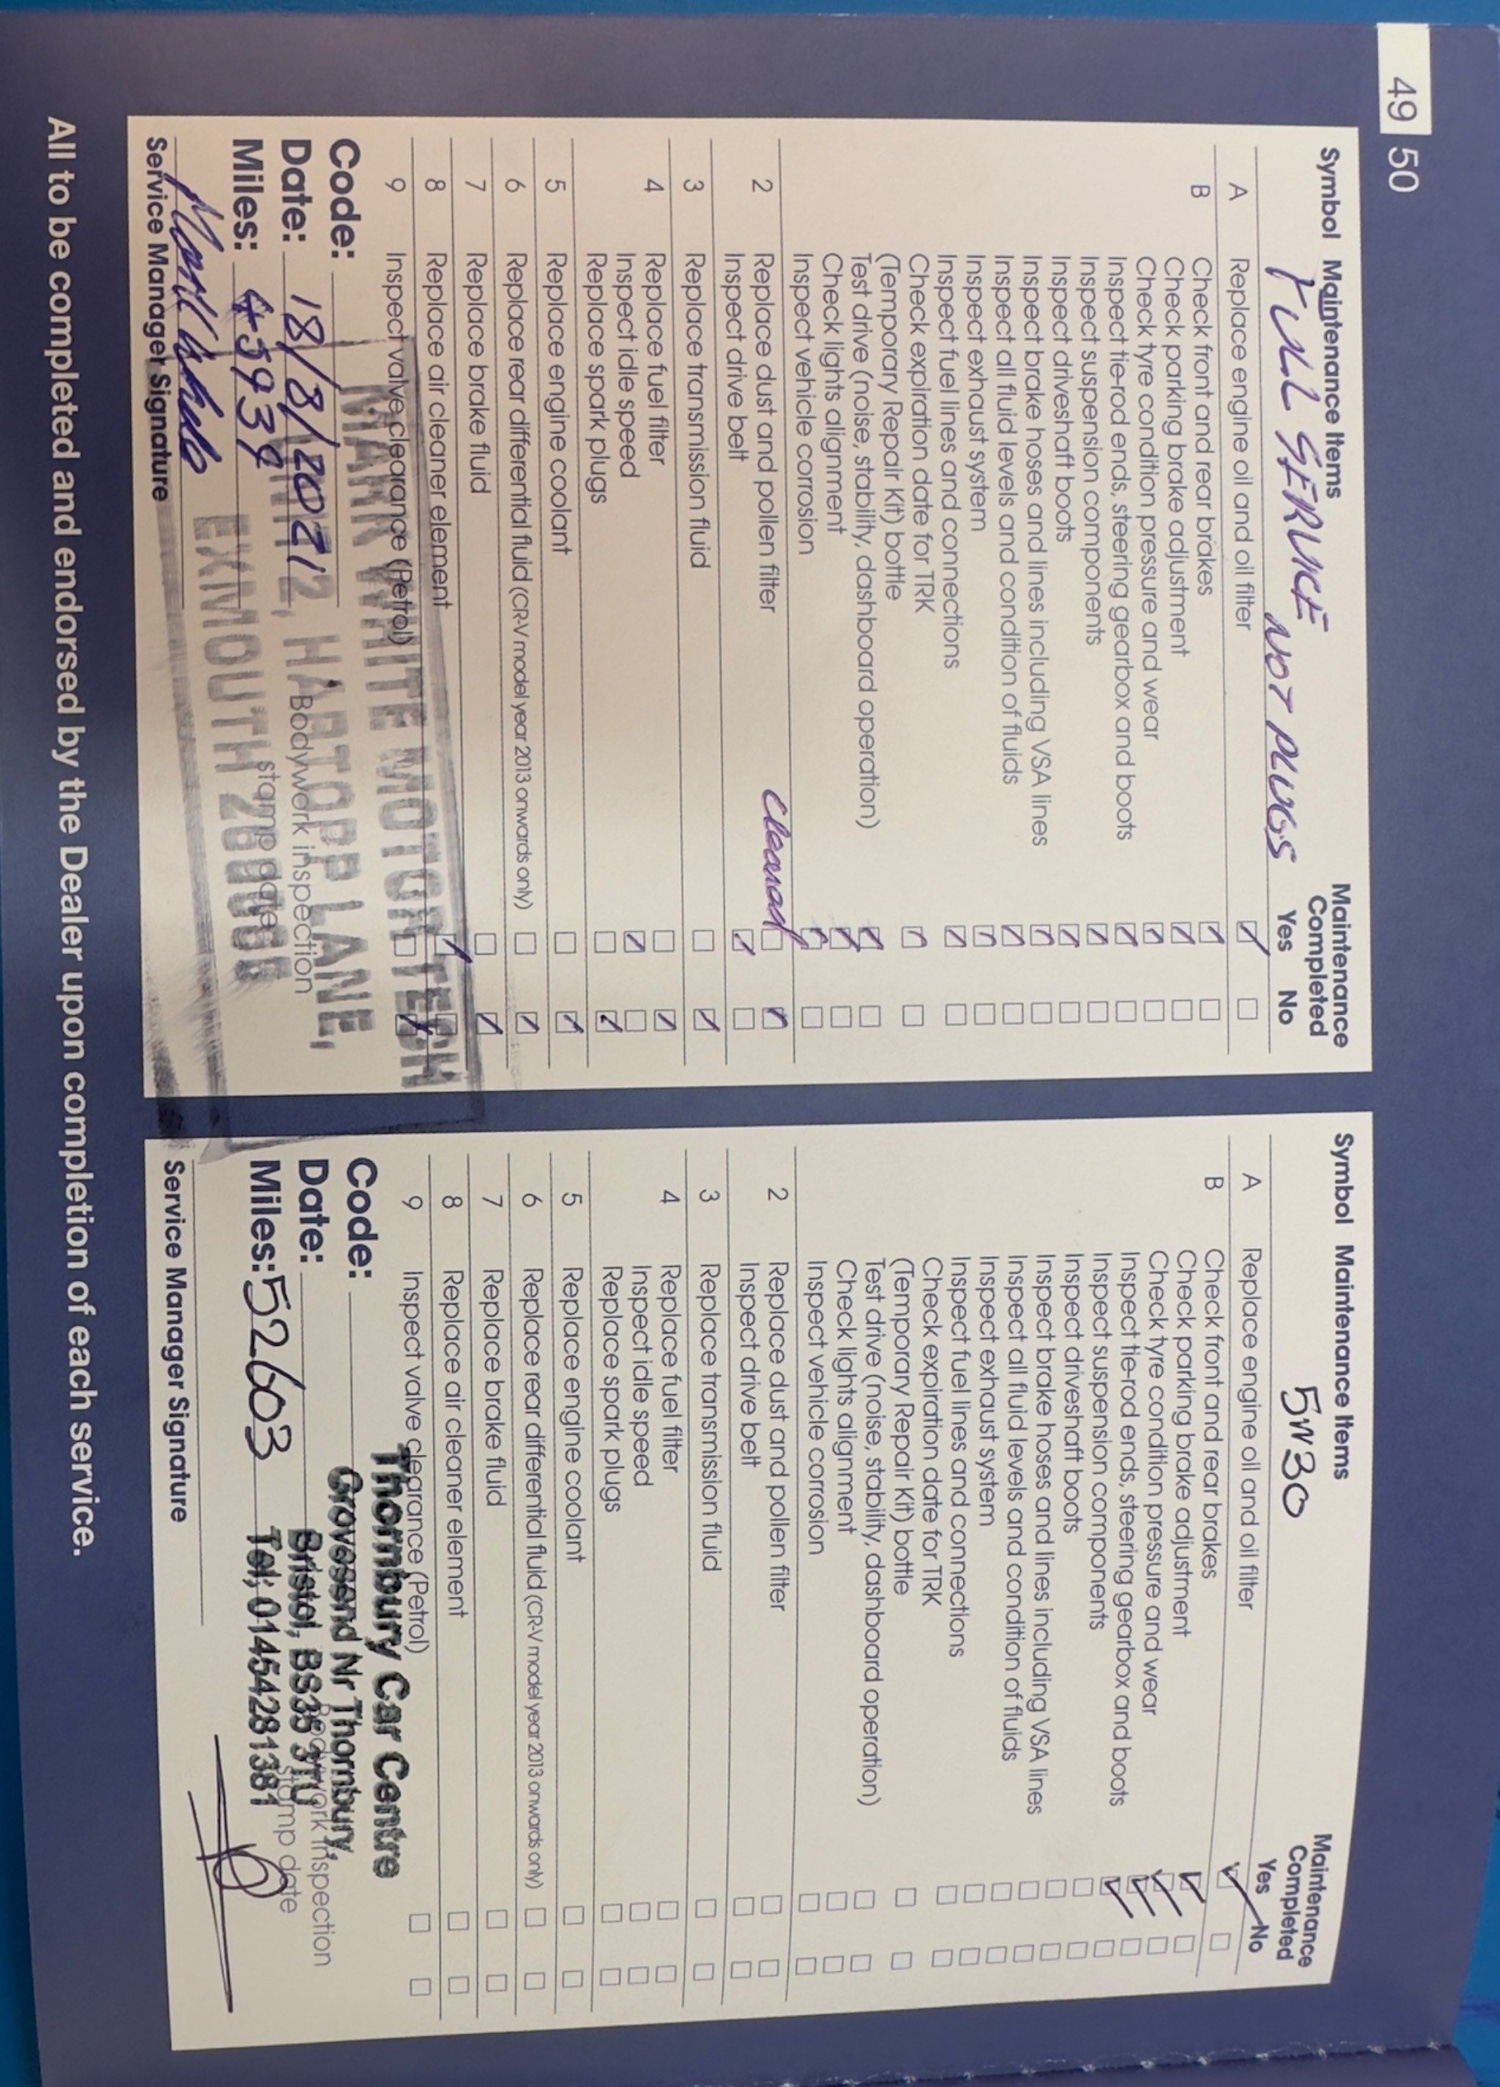 49 50
Symbol Maintenance Items
Maintenance Completed
FULL SERVICE NOT PLUGS
Yes No
A Replace engine oil and oil filter
B Check front and rear brakes
Check parking brake adjustment
Check tyre condition pressure and wear
Inspect tie-rod ends, steering gearbox and boots
Inspect suspension components
Inspect driveshaft boots
Inspect brake hoses and lines including VSA lines
Inspect all fluid levels and condition of fluids
Inspect exhaust system
Inspect fuel lines and connections
Check expiration date for TRK
(Temporary Repair Kit) bottle
Test drive (noise, stability, dashboard operation)
Check lights alignment
Inspect vehicle corrosion
2 Replace dust and pollen filter Cleaned
Inspect drive belt
3 Replace transmission fluid
4 Replace fuel filter
Inspect idle speed
Replace spark plugs
5 Replace engine coolant
6 Replace rear differential fluid (CR-V model year 2013 onwards only)
7 Replace brake fluid
8 Replace air cleaner element
9 Inspect valve clearance (Petrol)
MARK WHITE MOTOR TECH
UNIT 12, HARTOPP LANE,
EXMOUTH
Code:
Date: 18/8/2021
Bodywork inspection
stamp date
Miles: 45939
Service Manager Signature
Symbol Maintenance Items
Maintenance Completed
5W30
Yes No
A Replace engine oil and oil filter
B Check front and rear brakes
Check parking brake adjustment
Check tyre condition pressure and wear
Inspect tie-rod ends, steering gearbox and boots
Inspect suspension components
Inspect driveshaft boots
Inspect brake hoses and lines including VSA lines
Inspect all fluid levels and condition of fluids
Inspect exhaust system
Inspect fuel lines and connections
Check expiration date for TRK
(Temporary Repair Kit) bottle
Test drive (noise, stability, dashboard operation)
Check lights alignment
Inspect vehicle corrosion
2 Replace dust and pollen filter
Inspect drive belt
3 Replace transmission fluid
4 Replace fuel filter
Inspect idle speed
Replace spark plugs
5 Replace engine coolant
6 Replace rear differential fluid (CR-V model year 2013 onwards only)
7 Replace brake fluid
8 Replace air cleaner element
9 Inspect valve clearance (Petrol)
Thornbury Car Centre
Grovesend Nr Thornbury,
Bristol, BS35 3TU
Tel; 01454281381
Code:
Date:
Bodywork inspection
stamp date
Miles: 52603
Service Manager Signature
All to be completed and endorsed by the Dealer upon completion of each service.